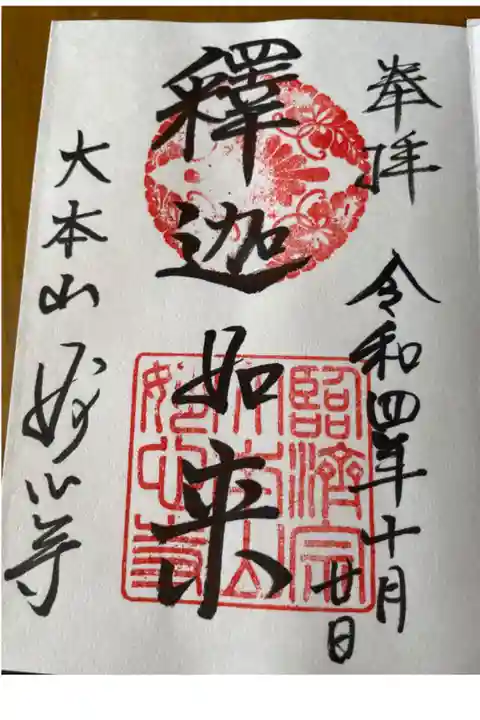 奉拝 令和四年十月廿日
釋迦如来
大本山 妙心寺
臨濟宗
大本山
妙心寺